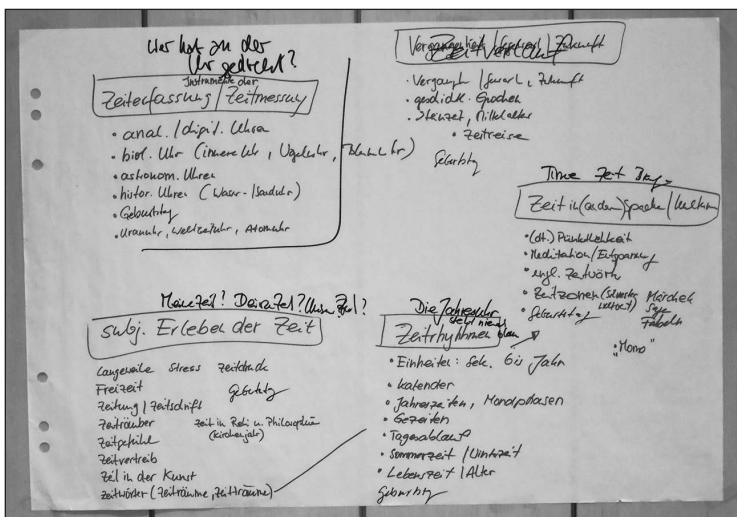 Wer hat an der
Uhr gedreht?
Instrumente der
Zeiterfassung / Zeitmessung
• anal. / digit. Uhren
• biol. Uhr (innere Uhr, Vogeluhr, Blumenuhr)
• astronom. Uhren
• histor. Uhren (Wasser- / Sanduhr)
• Geburtstag
• Uranuhr, Weltzeituhr, Atomuhr
Vergangenheit / / Zukunft
Zeitverlauf
• Vergangh / , Zukunft
• geschichtl. Epochen
• Steinzeit, Mittelalter
• Zeitreise
Geburtstag
Time Zeit
Zeit in (anderen) Sprachen / Kulturen
• (dt.) Pünktlichkeit
• Meditation / Entspannung
• engl. Zeitwörter
• Zeitzonen (Silvester weltweit)
• Geburtstag
Märchen
Sage
Fabeln
• "Momo"
Meine Zeit? Deine Zeit? Unsere Zeit?
subj. Erleben der Zeit
Langeweile Stress Zeitdruck
Freizeit Geburtstag
Zeitung / Zeitschrift
Zeiträuber Zeit in Reli u. Philosophie
(Kirchenjahr)
Zeitgefühl
Zeitvertreib
Zeit in der Kunst
Zeitwörter (Zeiträume, Zeitträume)
Die Jahresuhr
steht niemals
Zeitrhythmen
• Einheiten: Sek. bis Jahr
• Kalender
• Jahreszeiten, Mondphasen
• Gezeiten
• Tagesablauf
• Sommerzeit / Winterzeit
• Lebenszeit / Alter
Geburtstag